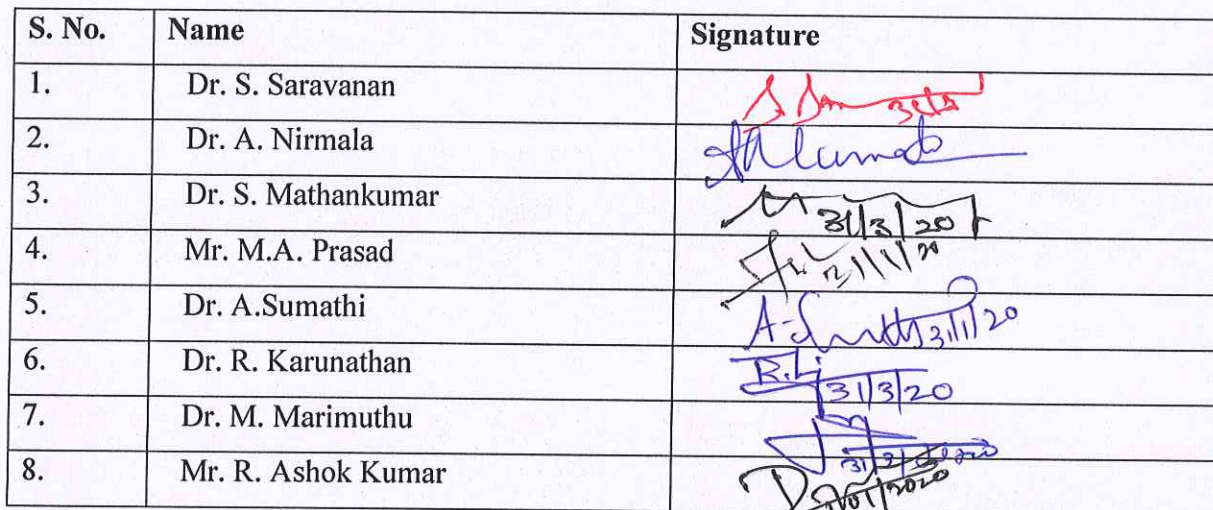 S. No. Name Signature
1. Dr. S. Saravanan
2. Dr. A. Nirmala
3. Dr. S. Mathankumar 31/3/20
4. Mr. M.A. Prasad
5. Dr. A.Sumathi 31/1/20
6. Dr. R. Karunathan 31/3/20
7. Dr. M. Marimuthu
8. Mr. R. Ashok Kumar